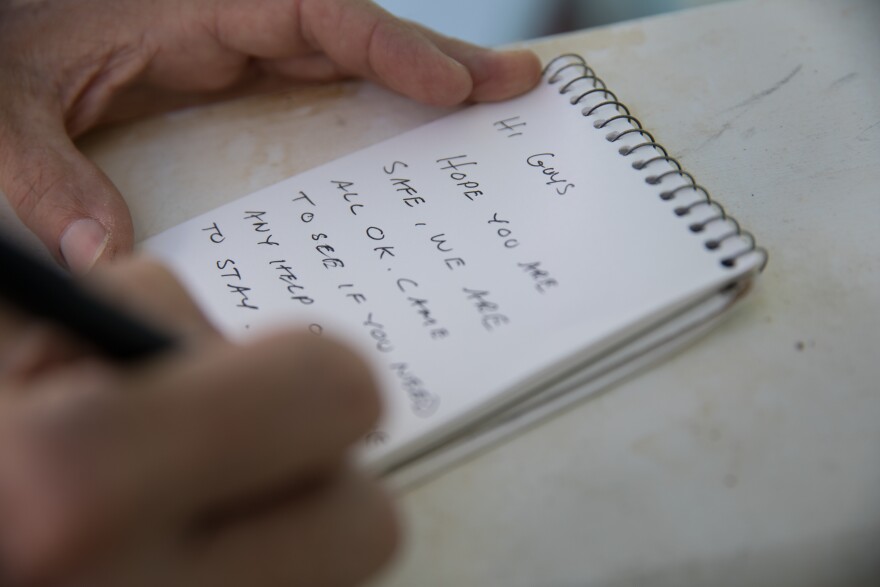 HI GUYS
HOPE YOU ARE
SAFE, WE ARE
ALL OK. CAME
TO SEE IF YOU NEED
ANY HELP
TO STAY.